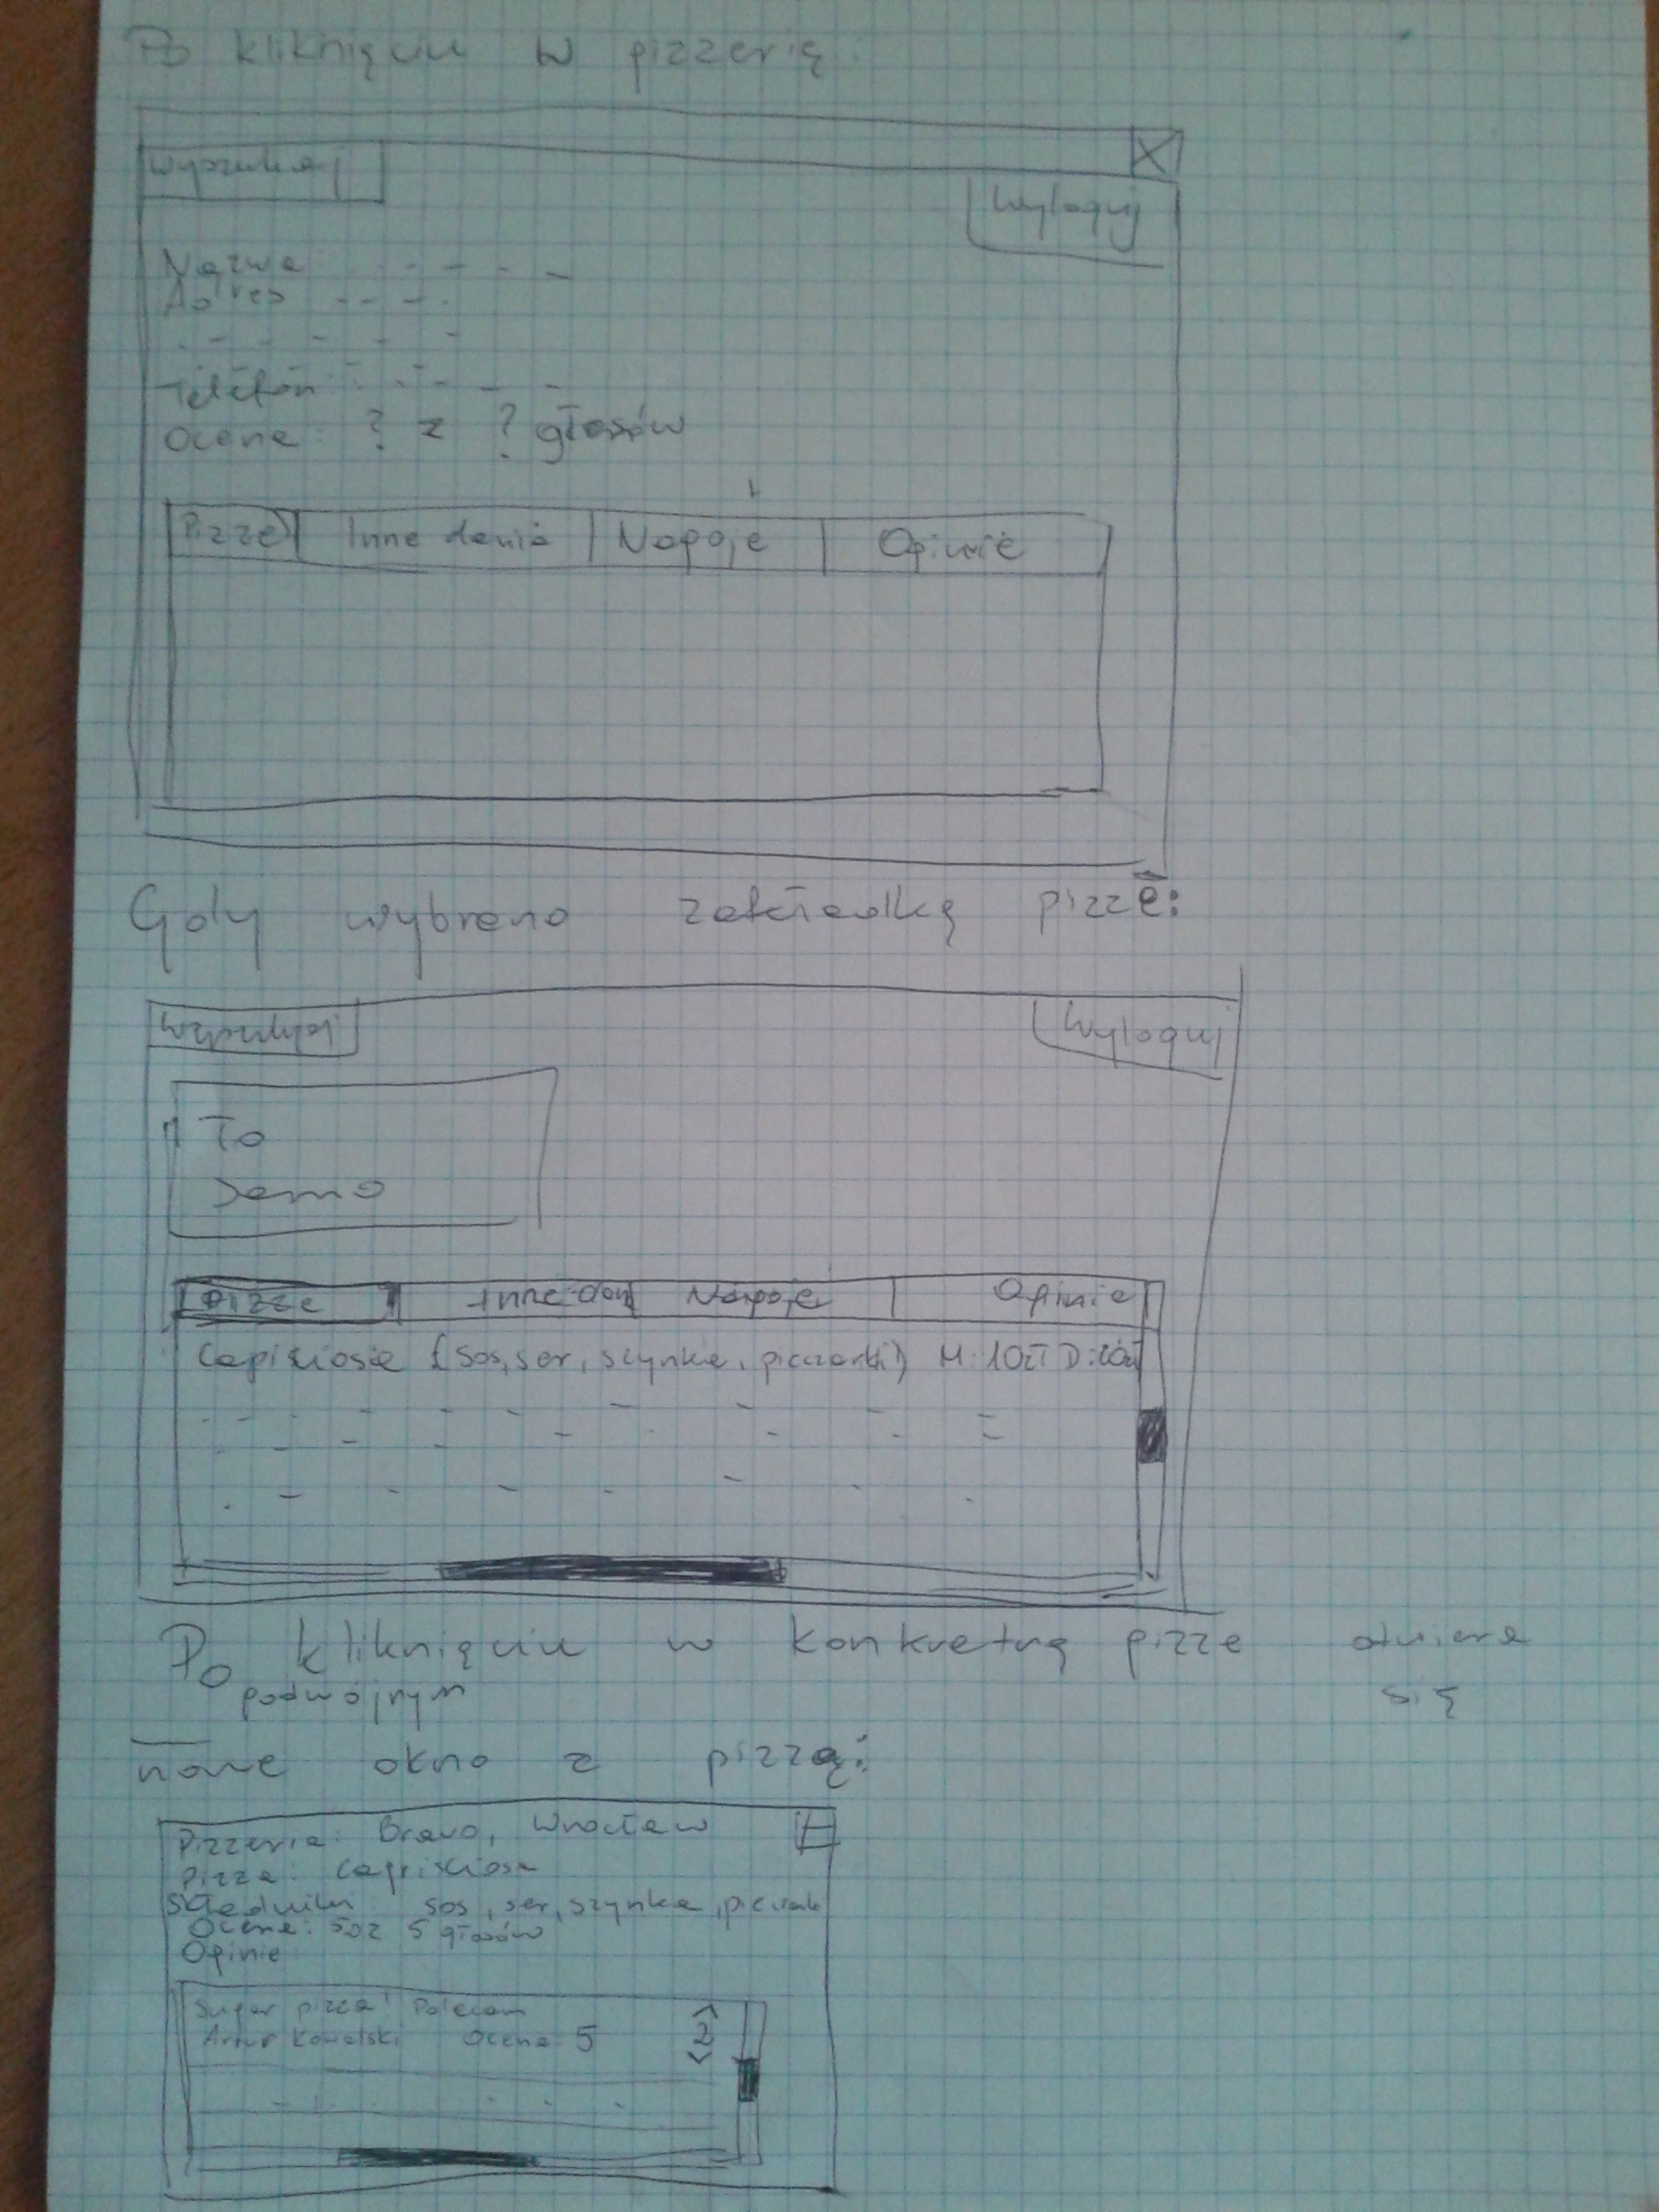 Po kliknięciu w pizzerię:
X
Wyszukaj
Wyloguj
Nazwa
Adres
Telefon:
Ocena: ? z ? głosów
Pizze Inne dania Napoje Opinie
Gdy wybrano zakładkę pizze:
Wyszukaj Wyloguj
To
Samo
Pizze Inne dan Napoje Opinie
Capisiosa (sos, ser, szynka, pieczarki) M: 10zł D: 20zł
Po kliknięciu w konkretną pizze otwiera
podwójnym się
nowe okno z pizzą:
Pizzeria: Bravo, Wrocław
Pizza: Caprisiosa
Składniki sos, ser, szynka,
Ocena: 5 z 5 głosów
Opinie
Super pizza! Polecam
Artur Kowalski Ocena: 5 2